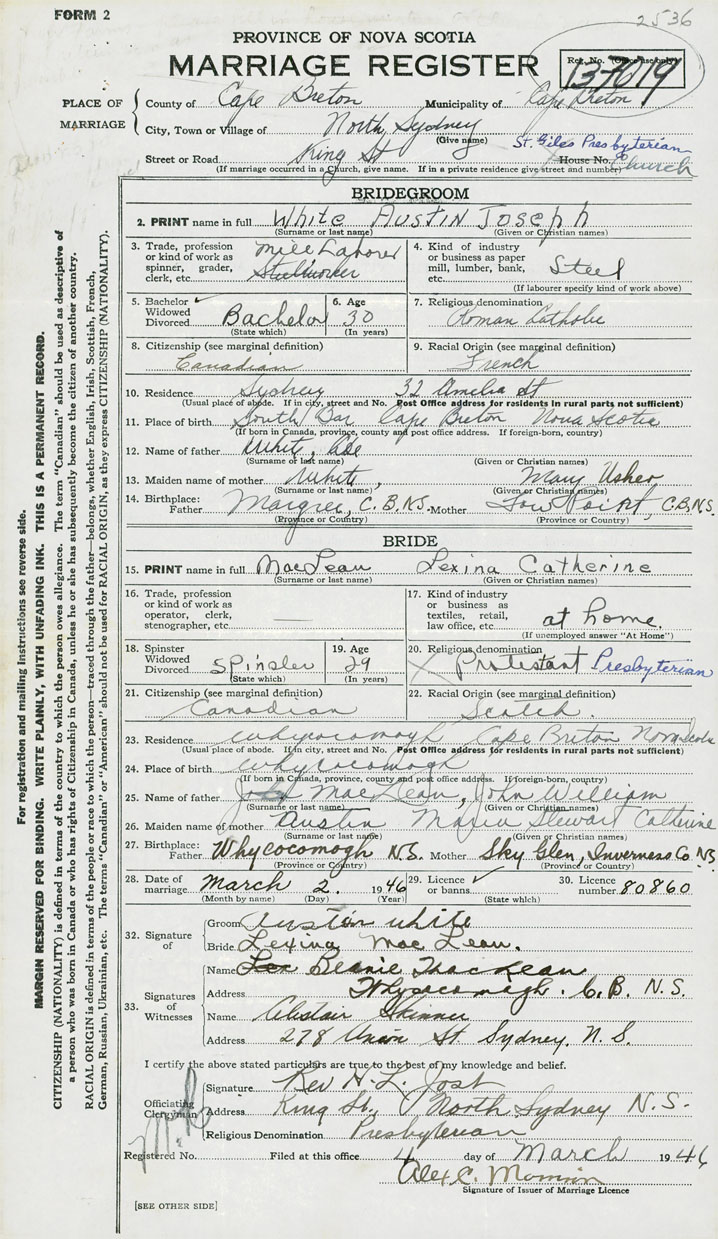 FORM 2
2536
PROVINCE OF NOVA SCOTIA
MARRIAGE REGISTER
Reg. No. (Office use only)
PLACE OF MARRIAGE
County of Cape Breton Municipality of Cape Breton
City, Town or Village of North Sydney
(Give name) St. Giles Presbyterian
Street or Road King St House No. Church
(If marriage occurred in a Church, give name. If in a private residence give street and number)
BRIDEGROOM
2. PRINT name in full White Austin Joseph
(Surname or last name) (Given or Christian names)
3. Trade, profession or kind of work as spinner, grader, clerk, etc. Mill Laborer Steelworker
4. Kind of industry or business as paper mill, lumber, bank, etc. Steel
(If labourer specify kind of work above)
5. Bachelor Widowed Divorced Bachelor
(State which)
6. Age 30
(In years)
7. Religious denomination Roman Catholic
8. Citizenship (see marginal definition) Canadian
9. Racial Origin (see marginal definition) French
10. Residence Sydney 32 Amelia St
(Usual place of abode. If in city, street and No. Post Office address for residents in rural parts not sufficient)
11. Place of birth South Bar Cape Breton Nova Scotia
(If born in Canada, province, county and post office address. If foreign-born, country)
12. Name of father White, Abe
(Surname or last name) (Given or Christian names)
13. Maiden name of mother White, Mary Usher
(Surname or last name) (Given or Christian names)
14. Birthplace: Father Margree, C.B.N.S. Mother Low Point, C.B.N.S.
(Province or Country) (Province or Country)
BRIDE
15. PRINT name in full MacLean Lexina Catherine
(Surname or last name) (Given or Christian names)
16. Trade, profession or kind of work as operator, clerk, stenographer, etc. —
17. Kind of industry or business as textiles, retail, law office, etc. at home.
(If unemployed answer "At Home")
18. Spinster Widowed Divorced Spinster
(State which)
19. Age 29
(In years)
20. Religious denomination Protestant Presbyterian
21. Citizenship (see marginal definition) Canadian
22. Racial Origin (see marginal definition) Scotch
23. Residence Whycocomagh Cape Breton Nova Scotia
(Usual place of abode. If in city, street and No. Post Office address for residents in rural parts not sufficient)
24. Place of birth Whycocomagh
(If born in Canada, province, county and post office address. If foreign-born, country)
25. Name of father John MacLean, John William
(Surname or last name) (Given or Christian names)
26. Maiden name of mother Austin Stewart Catherine
(Surname or last name) (Given or Christian names)
27. Birthplace: Father Whycocomogh N.S. Mother Sky Glen, Inverness Co N.S
(Province or Country) (Province or Country)
28. Date of marriage March 2. 1946
(Month by name) (Day) (Year)
29. Licence or banns ✓
(State which)
30. Licence number 80860
32. Signature of
Groom Austin White
Bride Lexina MacLean.
33. Signatures of Witnesses
Name MacLean
Address Whycocomagh. C.B. N.S.
Name Alistair Skinner
Address 278 Union St. Sydney. N.S.
I certify the above stated particulars are true to the best of my knowledge and belief.
Officiating Clergyman
Signature Rev H. L. Jost
Address King St., North Sydney N.S.
Religious Denomination Presbyterian
Registered No. Filed at this office 4 day of March 1946
Alex. C.
Signature of Issuer of Marriage Licence
[SEE OTHER SIDE]
For registration and mailing instructions see reverse side.
MARGIN RESERVED FOR BINDING. WRITE PLAINLY, WITH UNFADING INK. THIS IS A PERMANENT RECORD.
CITIZENSHIP (NATIONALITY) is defined in terms of the country to which the person owes allegiance. The term "Canadian" should be used as descriptive of
a person who was born in Canada or who has rights of Citizenship in Canada, unless he or she has subsequently become the citizen of another country.
RACIAL ORIGIN is defined in terms of the people or race to which the person—traced through the father—belongs, whether English, Irish, Scottish, French,
German, Russian, Ukrainian, etc. The terms "Canadian" or "American" should not be used for RACIAL ORIGIN, as they express CITIZENSHIP (NATIONALITY).